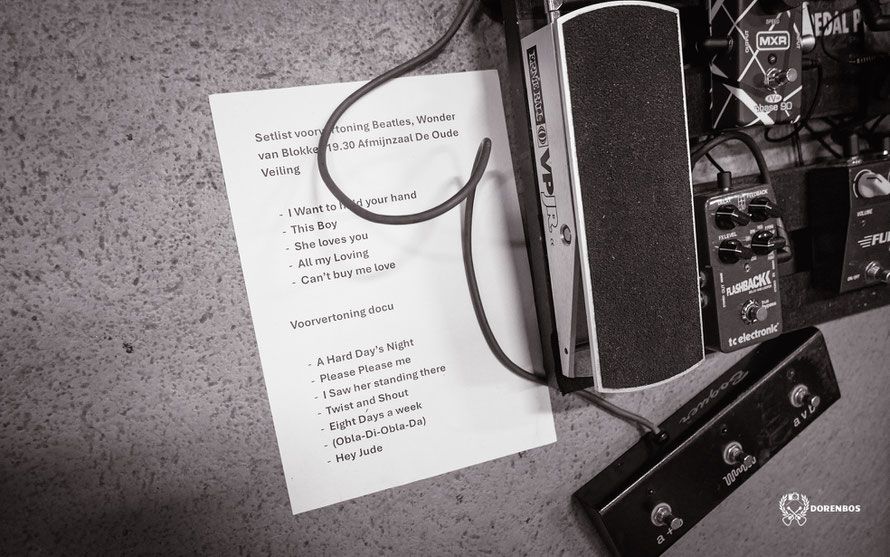 Setlist voorvertoning Beatles, Wonder
van Blokker 19.30 Afmijnzaal De Oude
Veiling
- I Want to hold your hand
- This Boy
- She loves you
- All my Loving
- Can't buy me love
Voorvertoning docu
- A Hard Day's Night
- Please Please me
- I Saw her standing there
- Twist and Shout
- Eight Days a week
- (Obla-Di-Obla-Da)
- Hey Jude
ERNIE BALL
VPJR
PEDAL P
SPEED
MXR
phase 90
FEEDBACK
FX LEVEL
FLASHBACK
tc electronic
VOLUME
FL
a +
DORENBOS